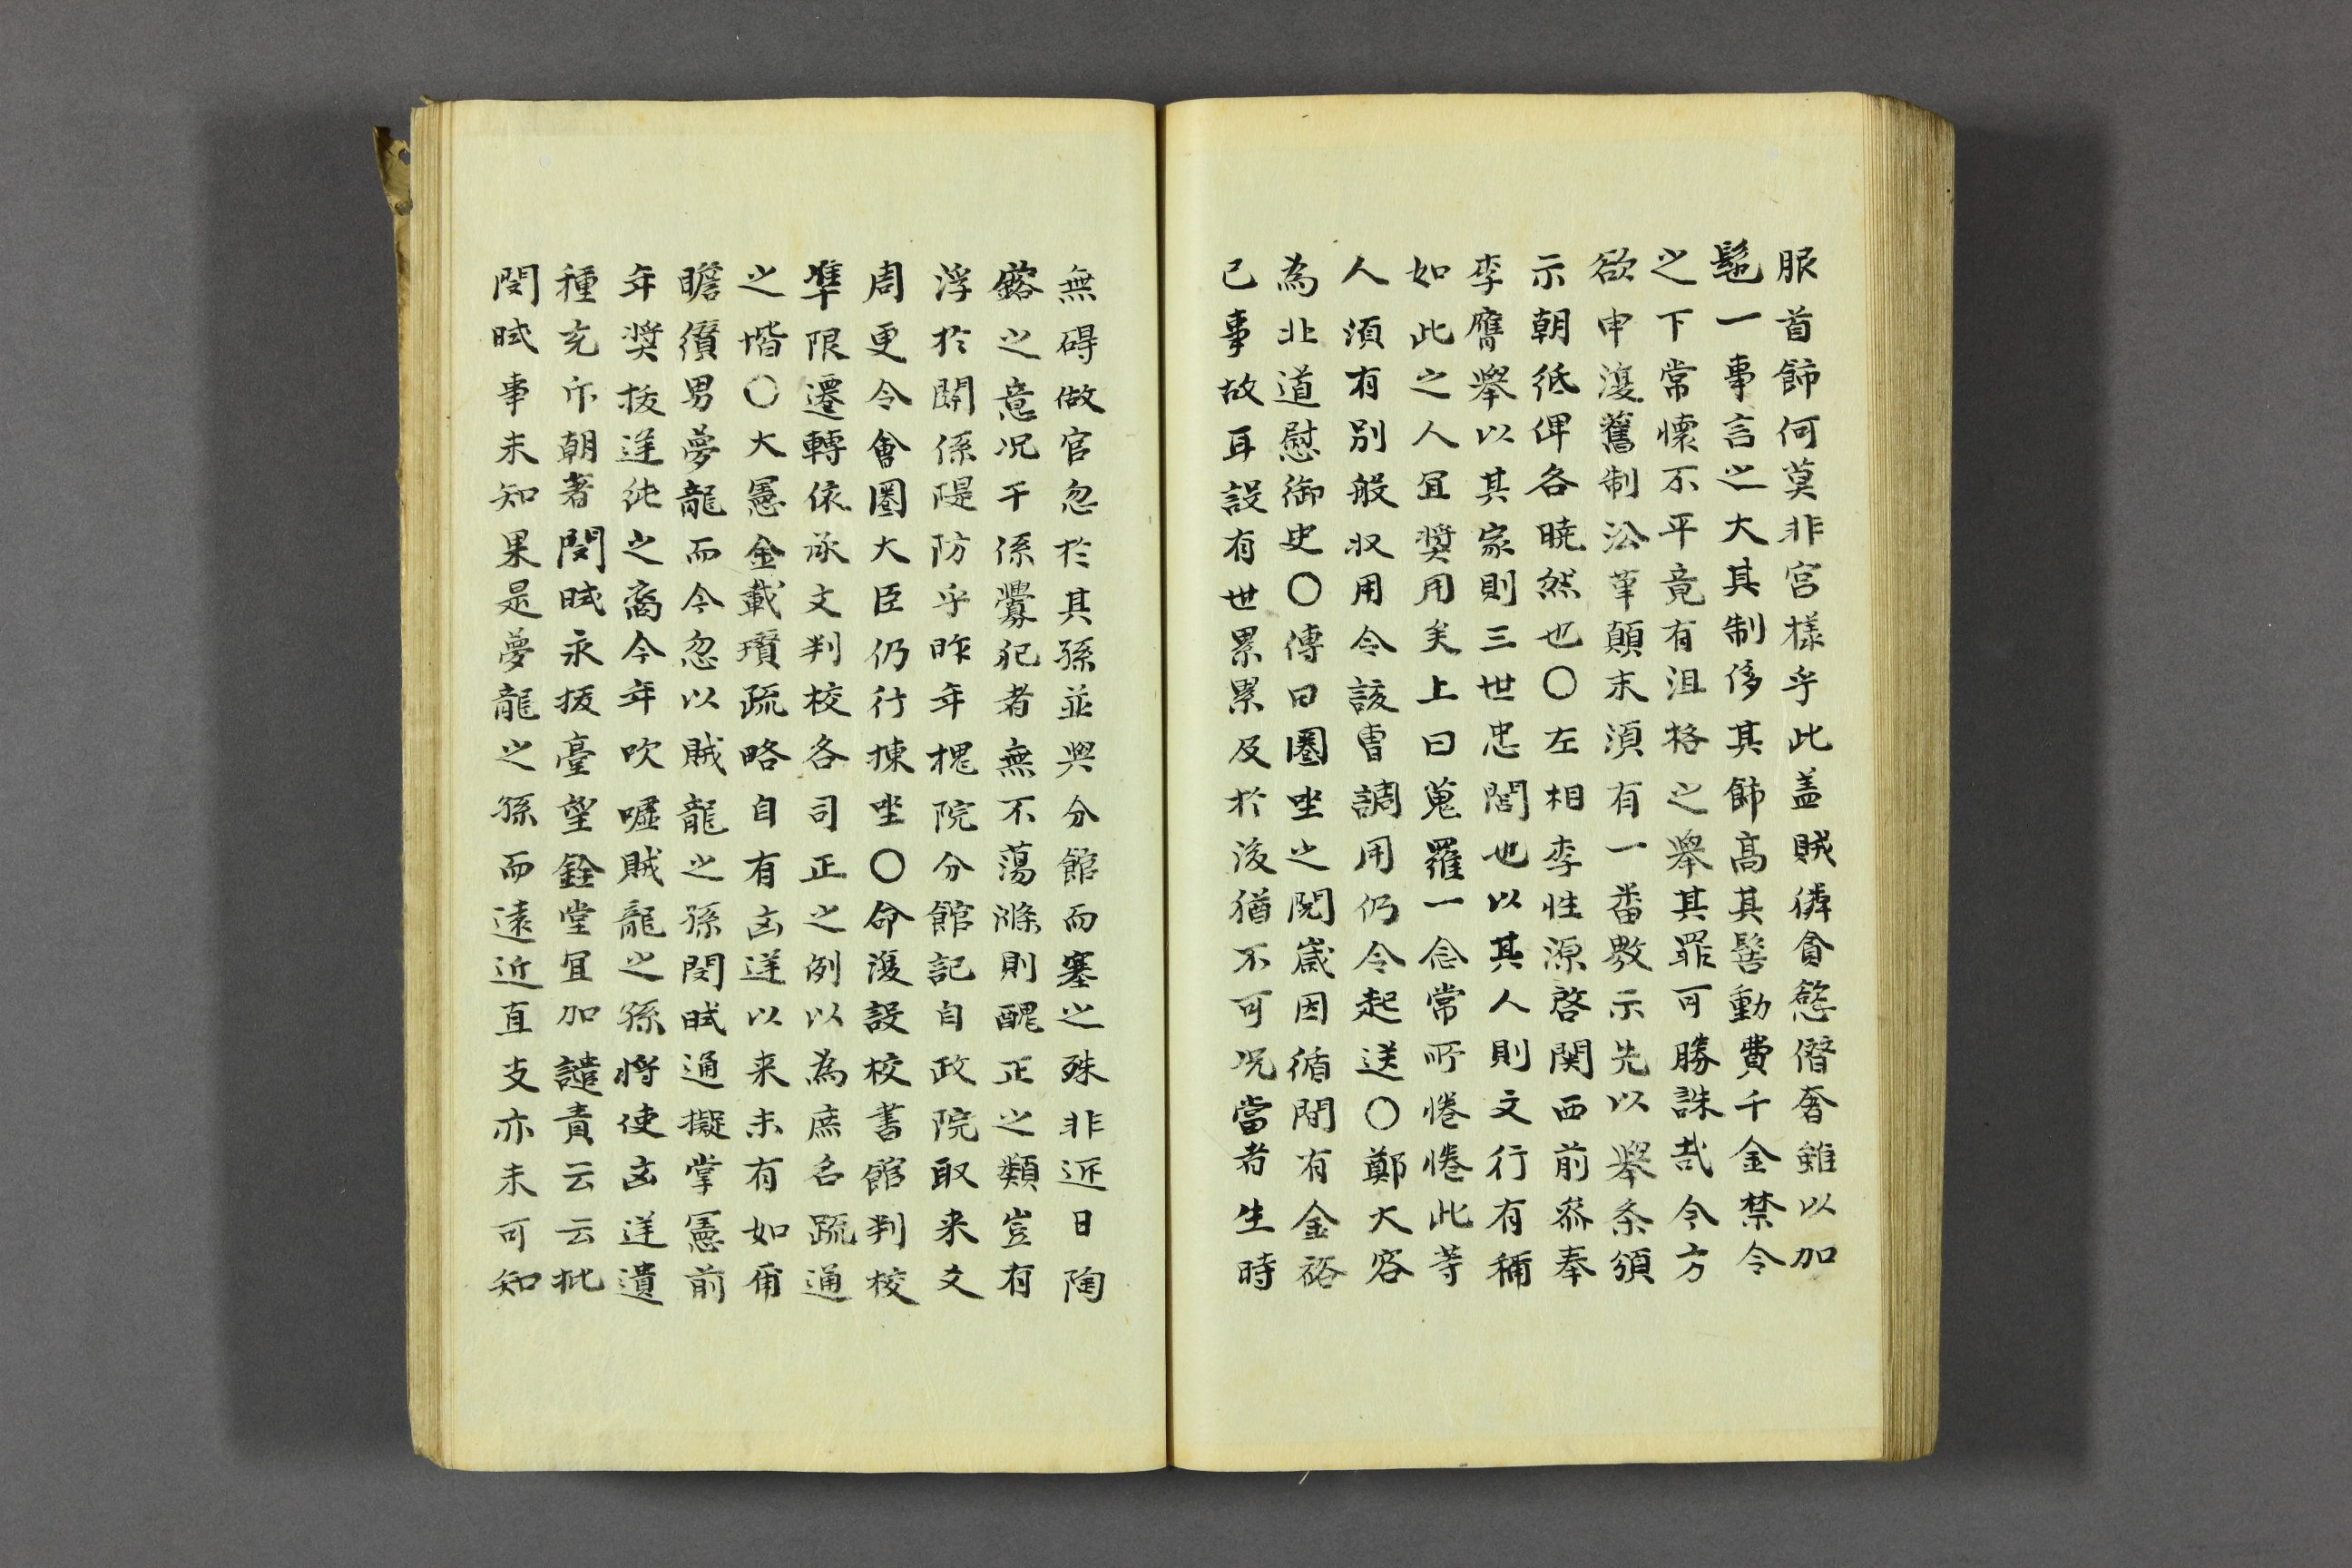 服首飾何莫非宮樣乎此盖賊僯貪慾僭奢雖以加
髢一事言之大其制侈其飾高其髻動費千金禁令
之下常懷不平竟有沮格之舉其罪可勝誅哉今方
欲申復舊制沿革顛末須有一番敷示先以舉条頒
示朝紙俾各曉然也〇左相李性源啓関西前叅奉
李膺舉以其家則三世忠閤也以其人則文行有稱
如此之人宜奬用矣上曰蒐羅一念常所惓惓此等
人須有別般収用令該曺調用仍令起送〇鄭大容
為北道慰御史〇傳曰圈坐之閱歲因循間有金𥙿
已事故耳設有世累累及於後猶不可况當者生時
無碍做官忽於其孫並與分館而塞之殊非近日陶
鎔之意况干係釁犯者無不蕩滌則醜正之類豈有
浮於關係隄防乎昨年槐院分館記自政院取来文
周更令會圈大臣仍行揀坐〇命復設校書館判校
準限遷轉依承文判校各司正之例以為庶名踈通
之堦〇大憲金載瓚疏略自有凶逆以来未有如甫
瞻儹男夢龍而今忽以賊龍之孫閔㦿通擬掌憲前
年奨拔逆純之裔今年吹噓賊龍之孫將使凶逆遺
種充斥朝著閔㦿永拔臺望銓堂宜加譴責云云批
閔㦿事未知果是夢龍之孫而遠近直支亦未可知